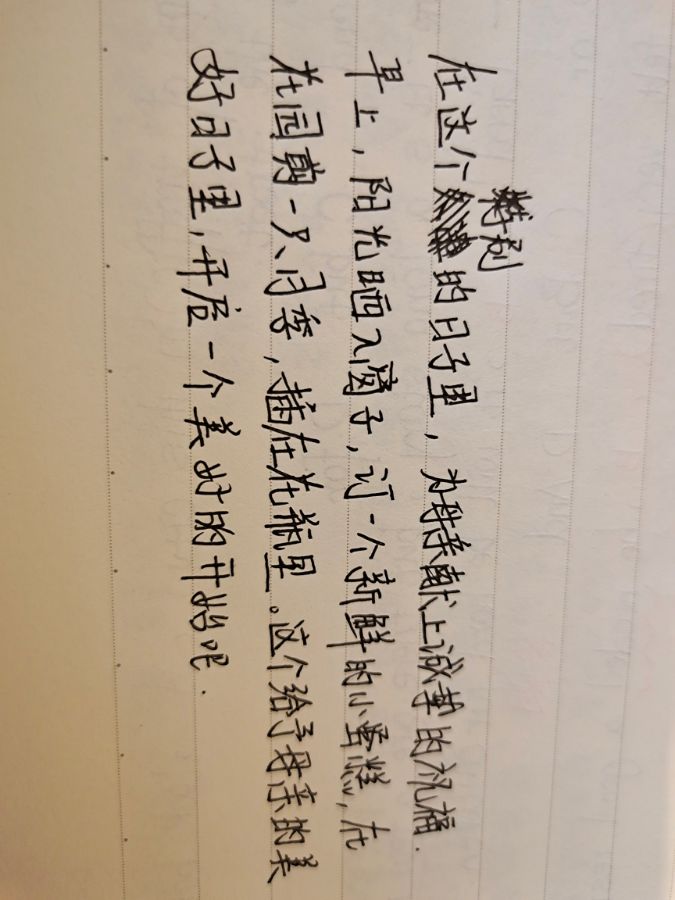 在这个特别的日子里，为母亲献上诚挚的祝福.
早上，阳光晒入窗子，订一个新鲜的小蛋糕，在
花园剪一只月季，插在花瓶里。这个给予母亲的美
好日子里，开启一个美好的开始吧.